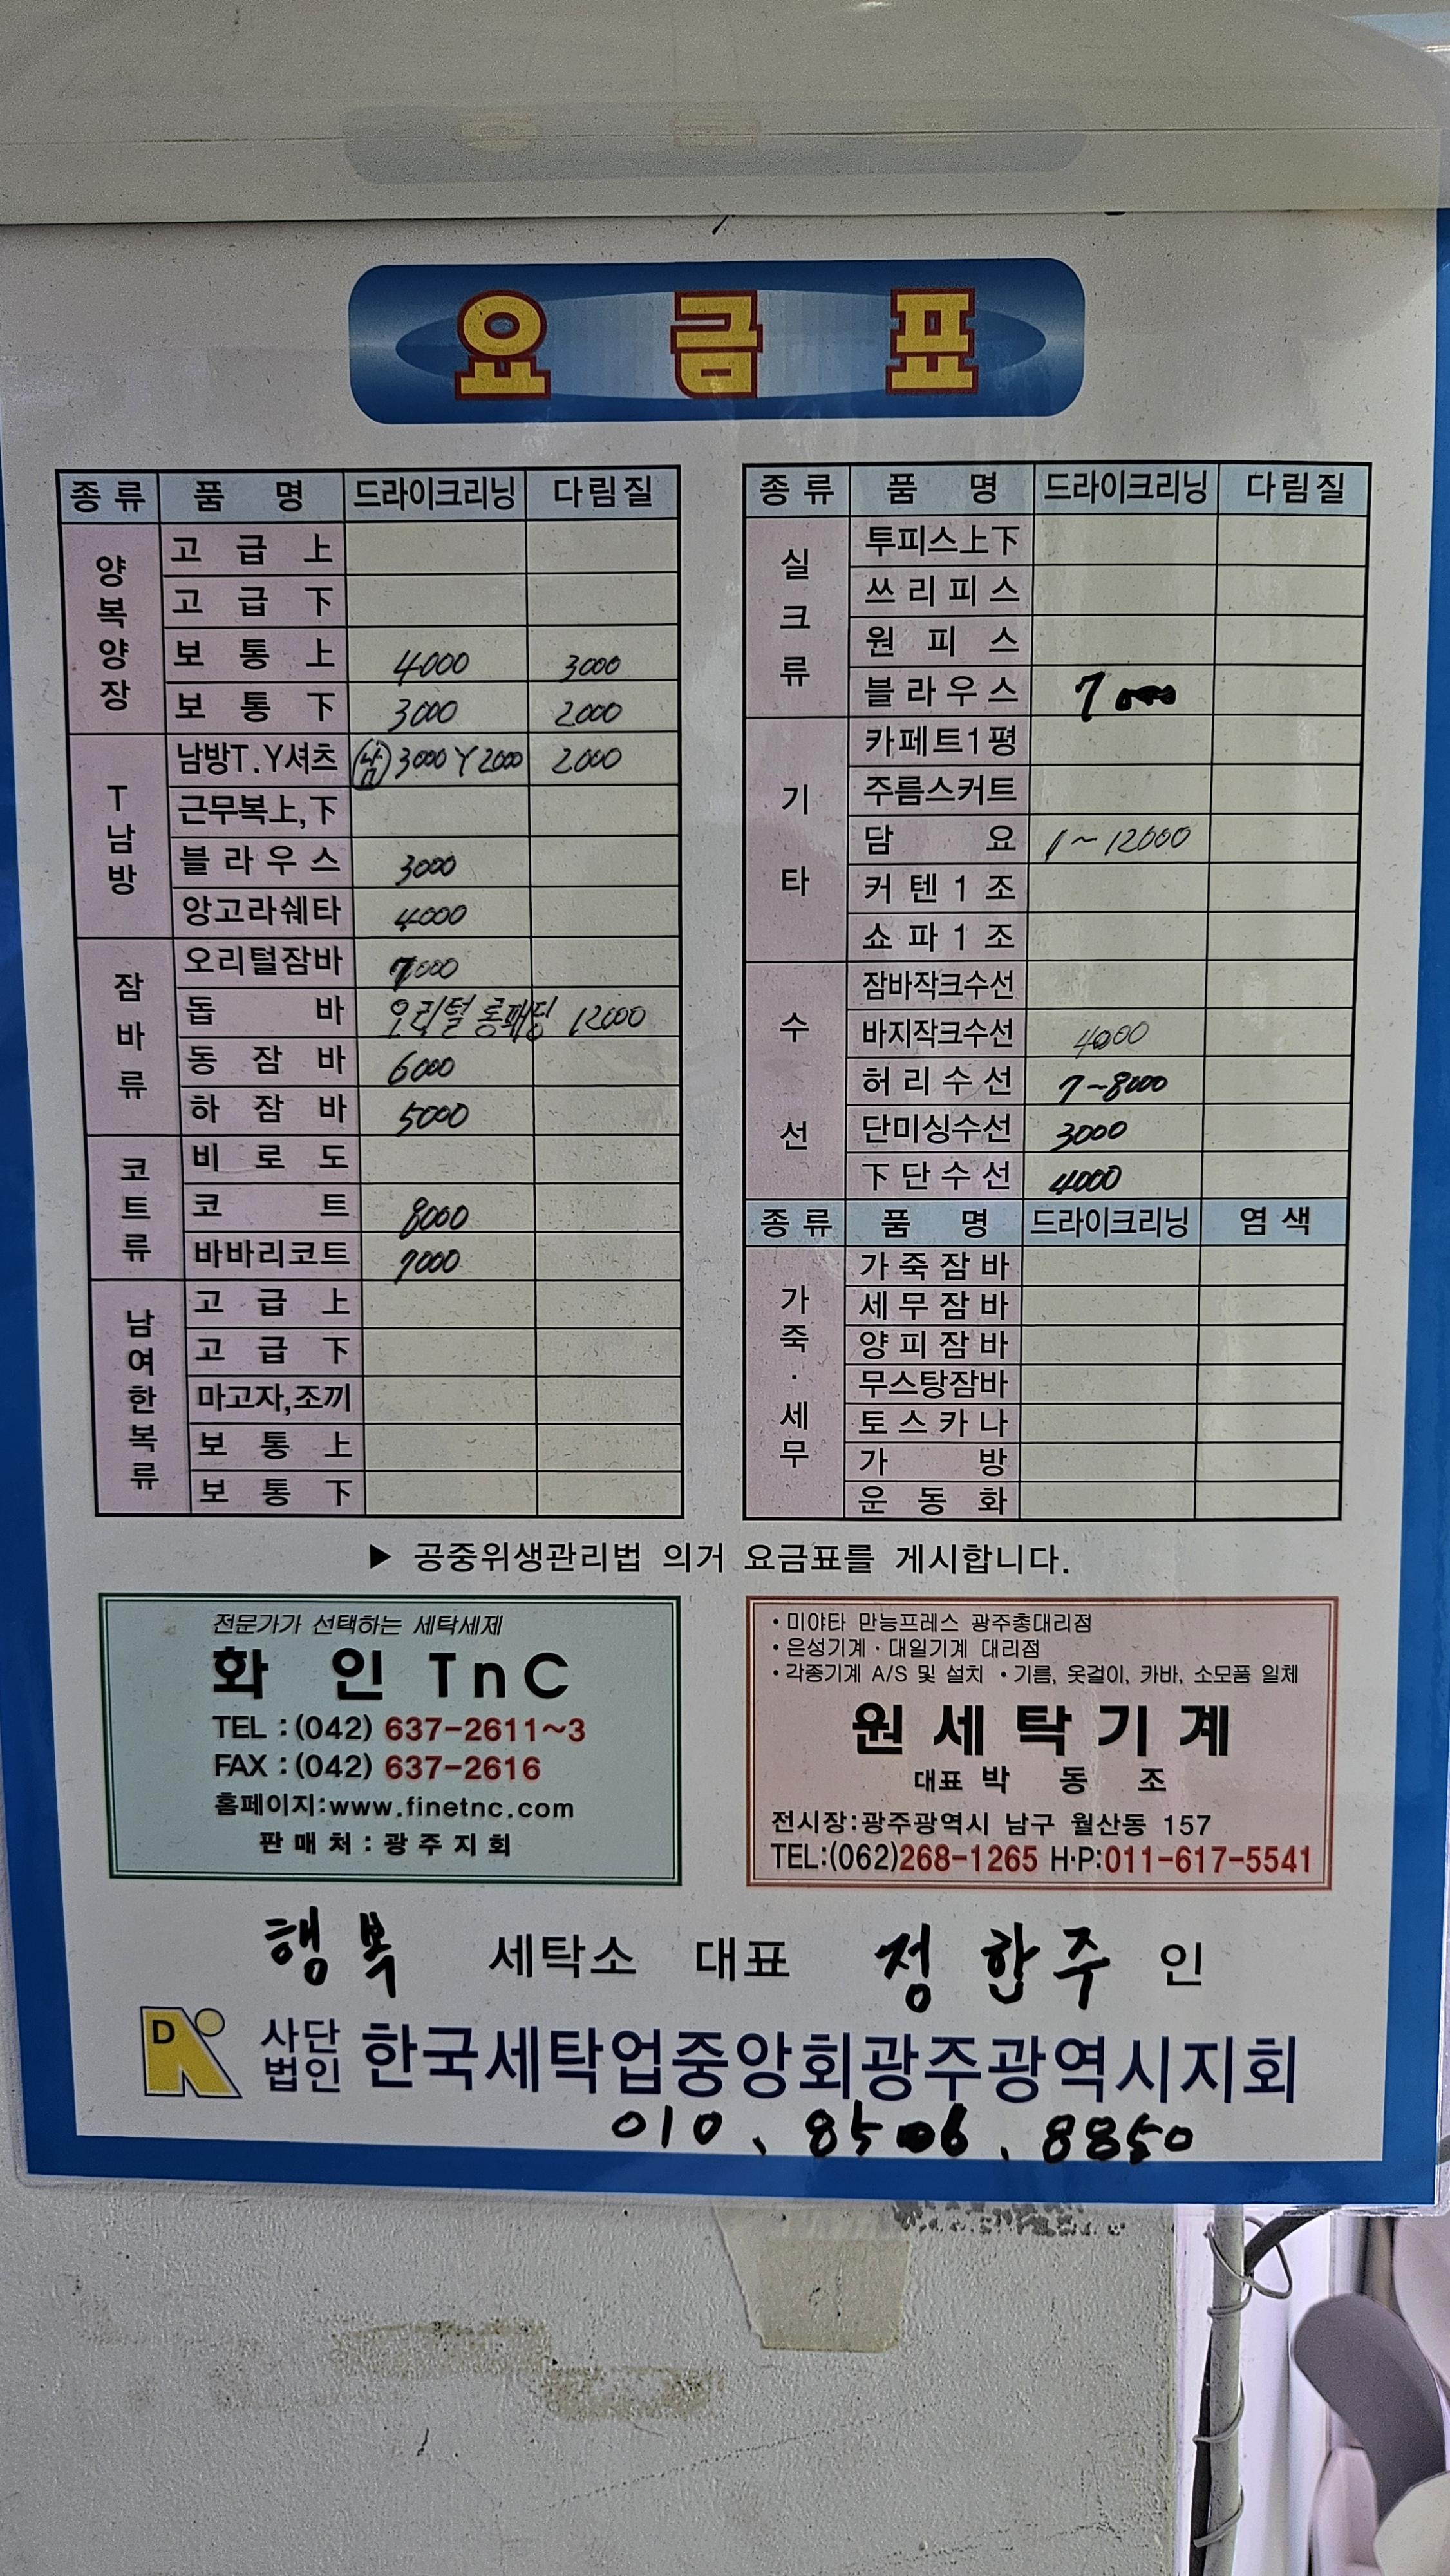 요 금 표
종 류 품 명 드라이크리닝 다림질
양복양장
고 급 上
고 급 下
보 통 上 4000 3000
보 통 下 3000 2000
T 남방
남방T.Y셔츠 남 3000 Y 2000 2000
근무복上,下
블 라 우 스 3000
앙고라쉐타 4000
잠바류
오리털잠바 7000
돕 바 오리털 롱패딩 12000
동 잠 바 6000
하 잠 바 5000
코트류
비 로 도
코 트 8000
바바리코트 7000
남여한복류
고 급 上
고 급 下
마고자,조끼
보 통 上
보 통 下
종 류 품 명 드라이크리닝 다림질
실크류
투피스上下
쓰 리 피 스
원 피 스
블 라 우 스 7000
기타
카페트1평
주름스커트
담 요 1~12000
커 텐 1 조
쇼 파 1 조
수선
잠바작크수선
바지작크수선 4000
허 리 수 선 7~8000
단미싱수선 3000
下 단 수 선 4000
종 류 품 명 드라이크리닝 염 색
가죽·세무
가 죽 잠 바
세 무 잠 바
양 피 잠 바
무스탕잠바
토 스 카 나
가 방
운 동 화
▶ 공중위생관리법 의거 요금표를 게시합니다.
전문가가 선택하는 세탁세제
화 인 TnC
TEL : (042) 637-2611~3
FAX : (042) 637-2616
홈페이지:www.finetnc.com
판 매 처 : 광 주 지 회
• 미야타 만능프레스 광주총대리점
• 은성기계 · 대일기계 대리점
• 각종기계 A/S 및 설치 • 기름, 옷걸이, 카바, 소모품 일체
원 세 탁 기 계
대표 박 동 조
전시장:광주광역시 남구 월산동 157
TEL:(062)268-1265 H·P:011-617-5541
행복 세탁소 대표 정한주 인
D
사단법인 한국세탁업중앙회광주광역시지회
010. 8506. 8850